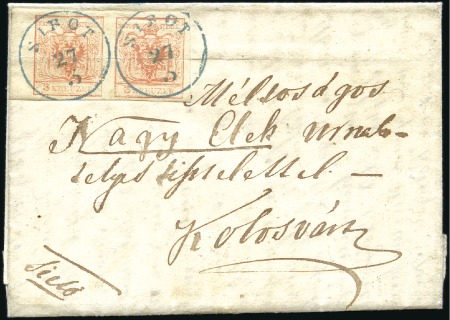 SIROT SIROT
27 27
5 5
3 KREUZER 3 KREUZER
Méltoságos
Nagy Elek urnak
teljes tisztelettel
Kolosvár